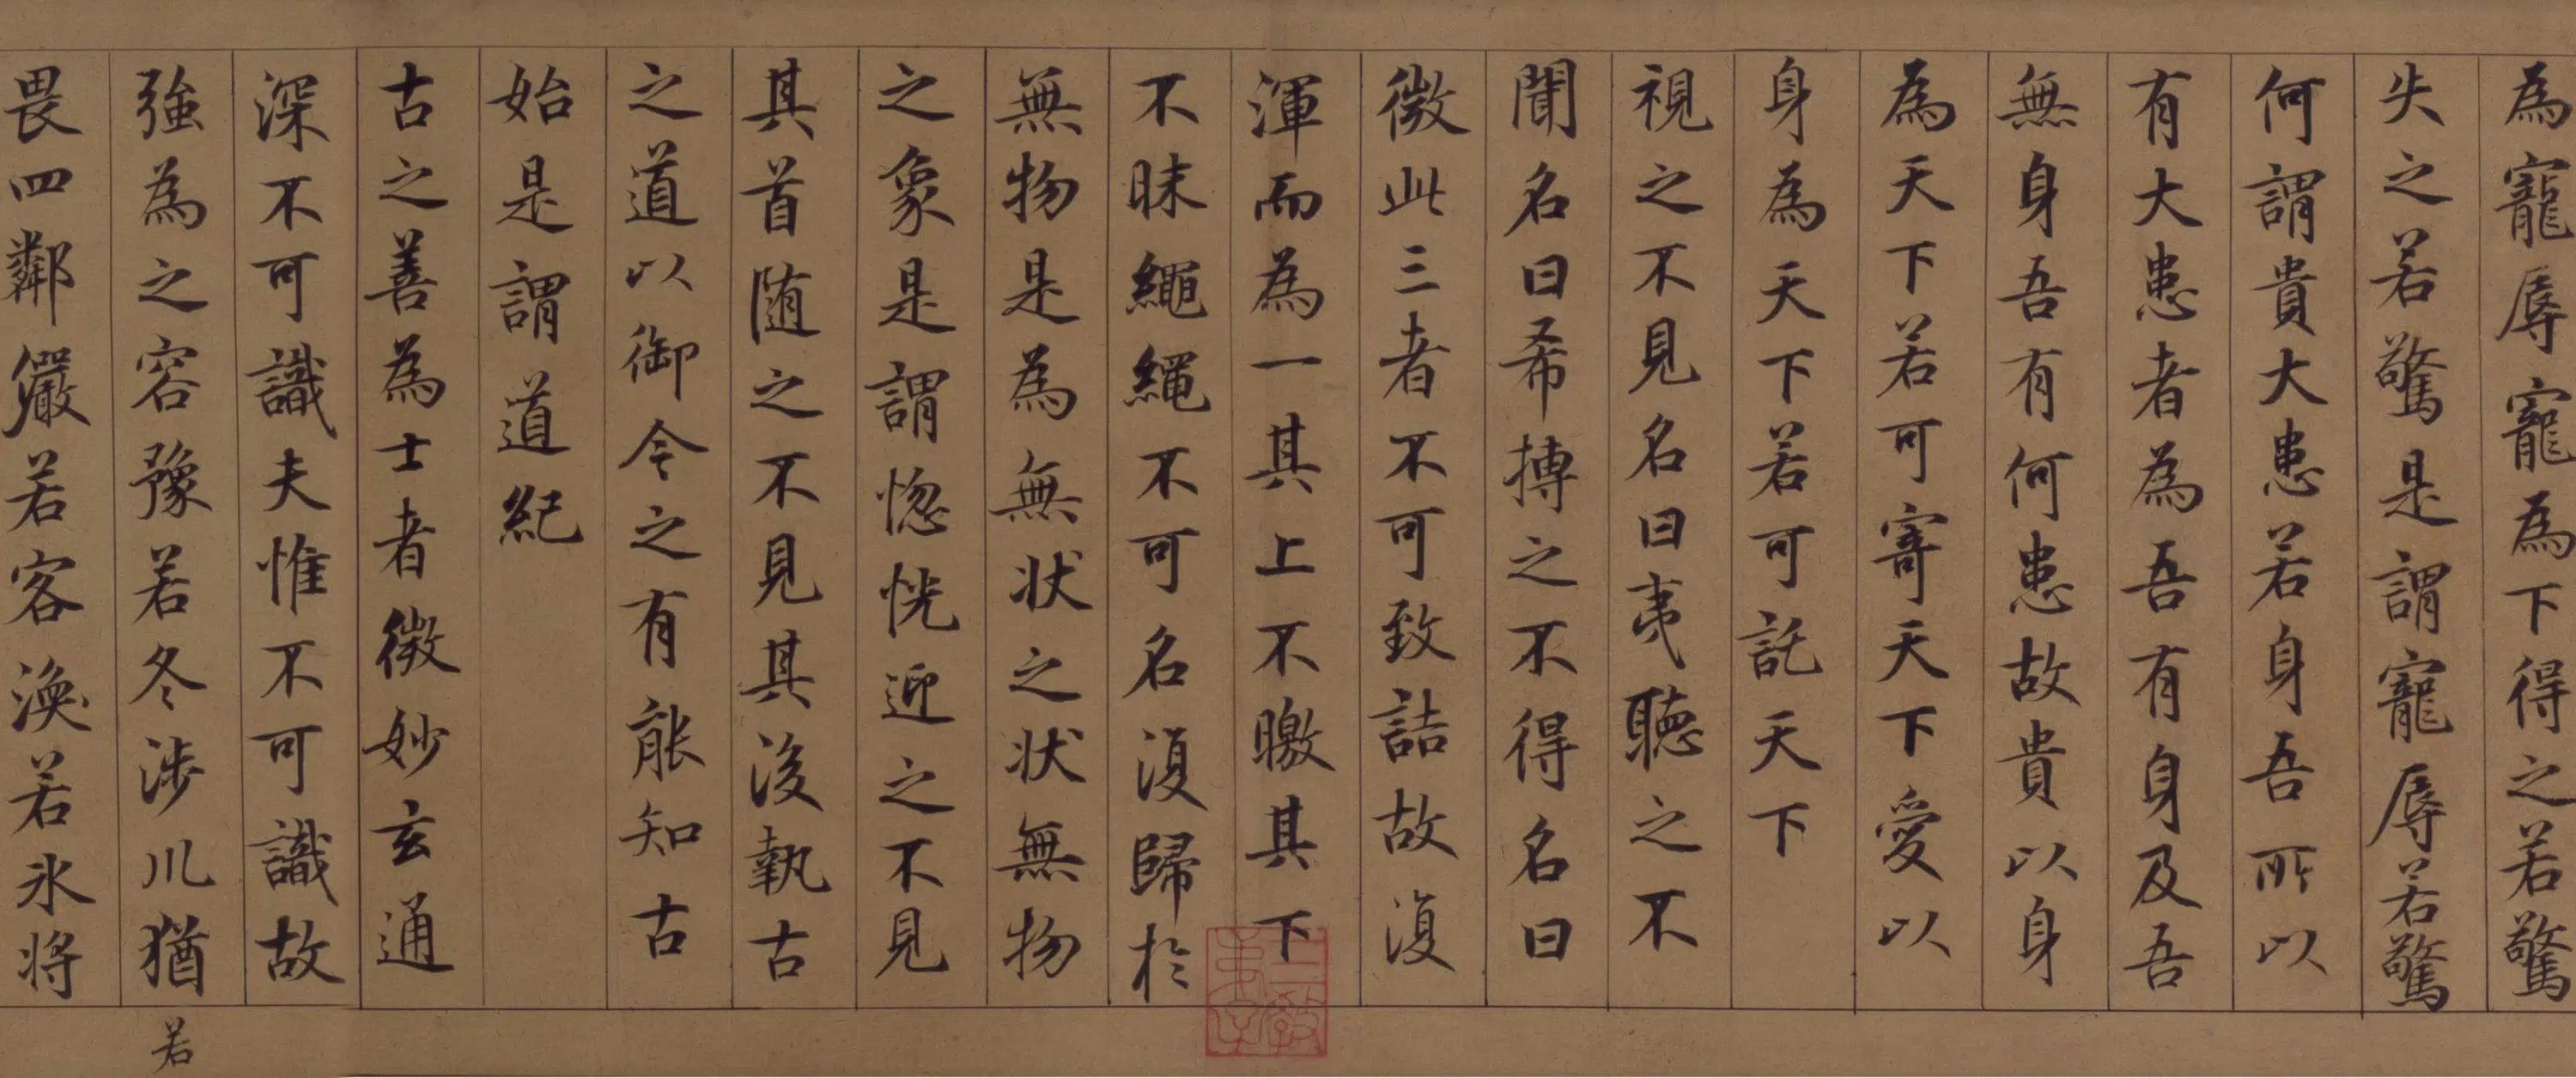 為寵辱寵為下得之若驚
失之若驚是謂寵辱若驚
何謂貴大患若身吾所以
有大患者為吾有身及吾
無身吾有何患故貴以身
為天下若可寄天下愛以
身為天下若可託天下
視之不見名曰夷聽之不
聞名曰希搏之不得名曰
微此三者不可致詰故復
渾而為一其上不皦其下
不昧繩繩不可名復歸於
無物是為無状之状無物
之象是謂惚恍迎之不見
其首随之不見其後執古
之道以御今之有能知古
始是謂道紀
古之善為士者微妙玄通
深不可識夫惟不可識故
強為之容豫若冬涉川猶
若
畏四鄰儼若客渙若氷將